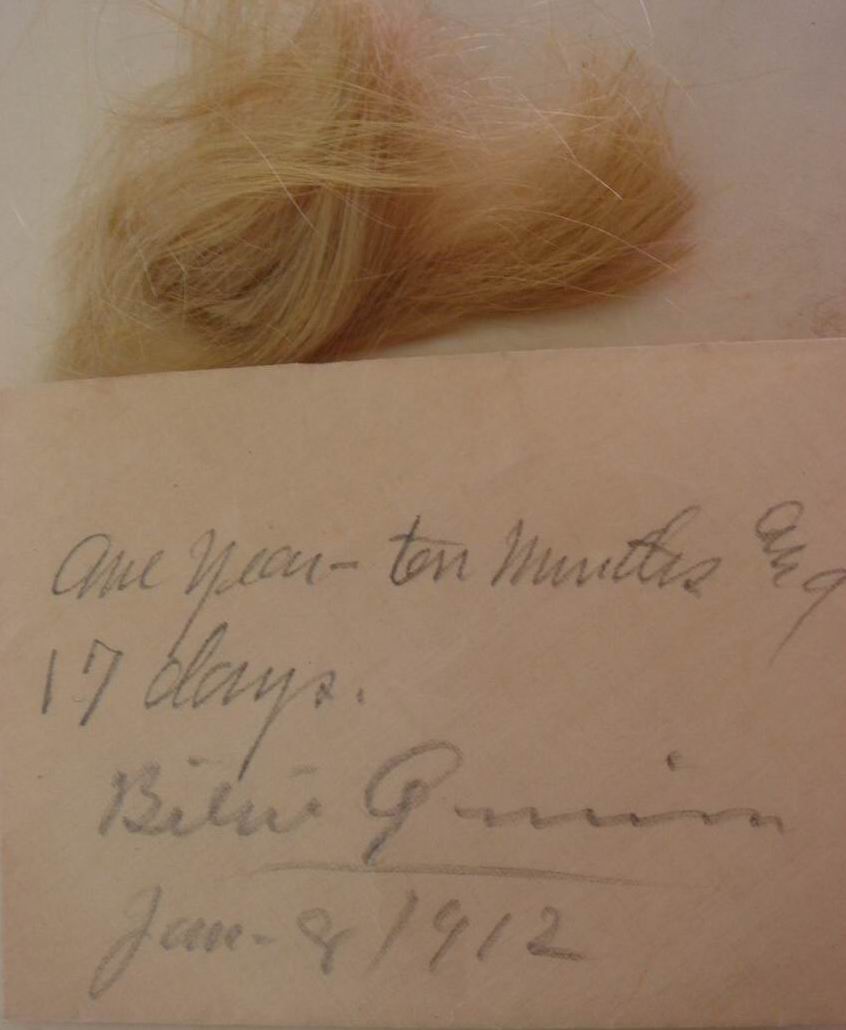 One Year - ten Months &
17 days.
Billie Quinn
Jan - 8 1912